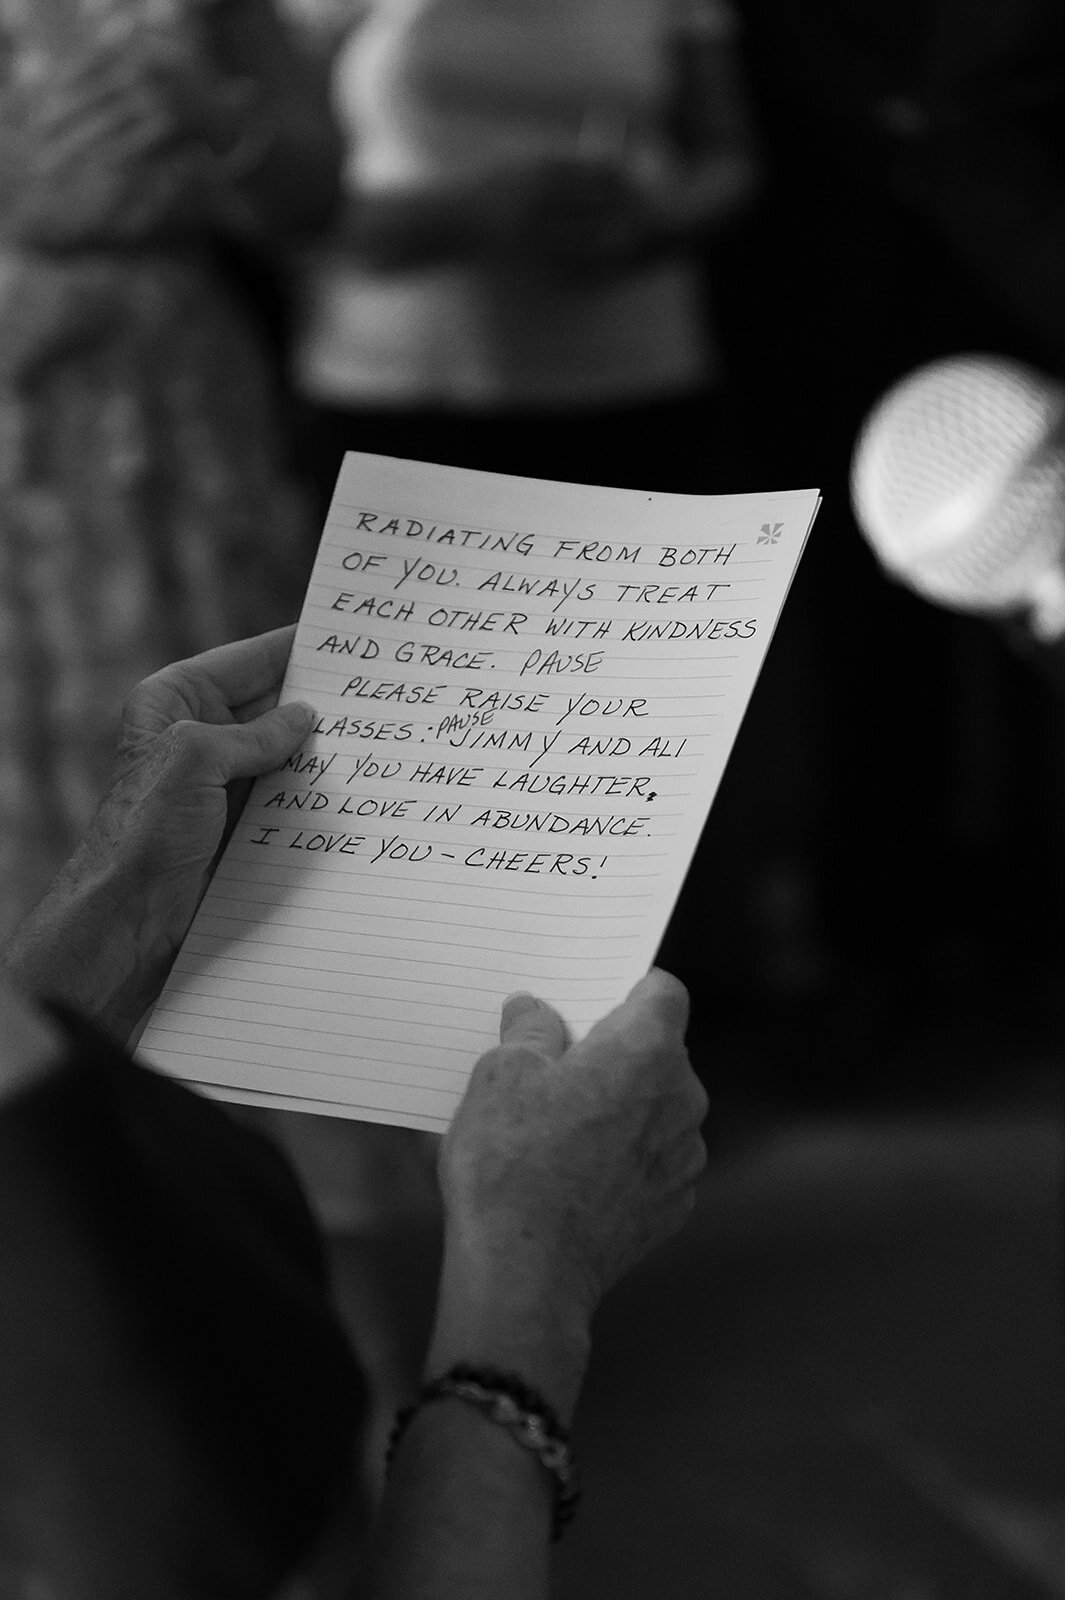 RADIATING FROM BOTH
OF YOU. ALWAYS TREAT
EACH OTHER WITH KINDNESS
AND GRACE. PAUSE
PLEASE RAISE YOUR
LASSES: PAUSE JIMMY AND ALI
MAY YOU HAVE LAUGHTER,
AND LOVE IN ABUNDANCE.
I LOVE YOU - CHEERS!